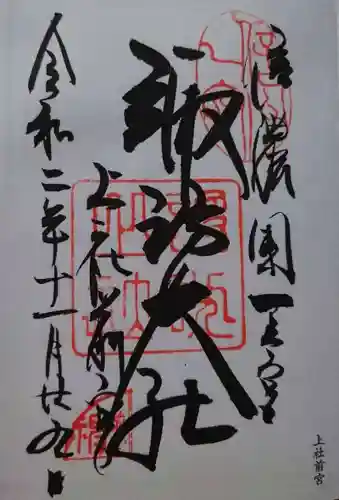 信濃國一之宮
諏訪大社
上社前宮
令和二年十一月廿九日
上社前宮